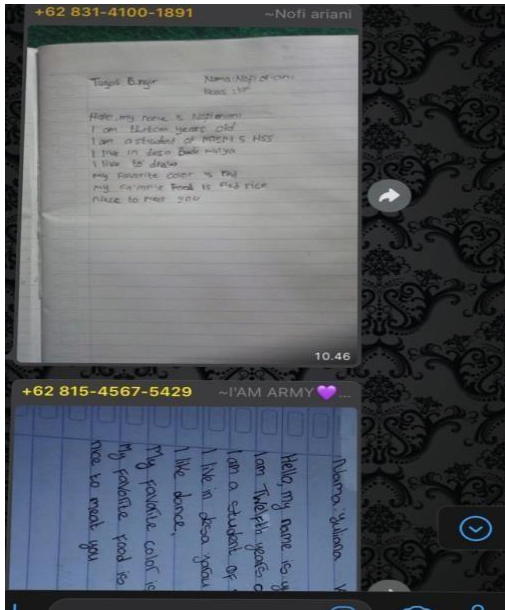 +62 831-4100-1891 ~Nofi ariani
Tugas B.ingir Nama: Nofi ariani
Hello, my name is Nofi ariani
I am thirteen years old
I am a student of MTSN 5 HSS
I live in desa mulya
I like to draw
My Favorite color is
My Food is rice
nice to meet you
10.46
+62 815-4567-5429 ~I'AM ARMY💜...
Nama: Yuliana
Hello, my name is y
I am Twelfth years o
I am a student of
I live in desa
I like dance,
My favorite color is
My favorite food is
nice to meat you